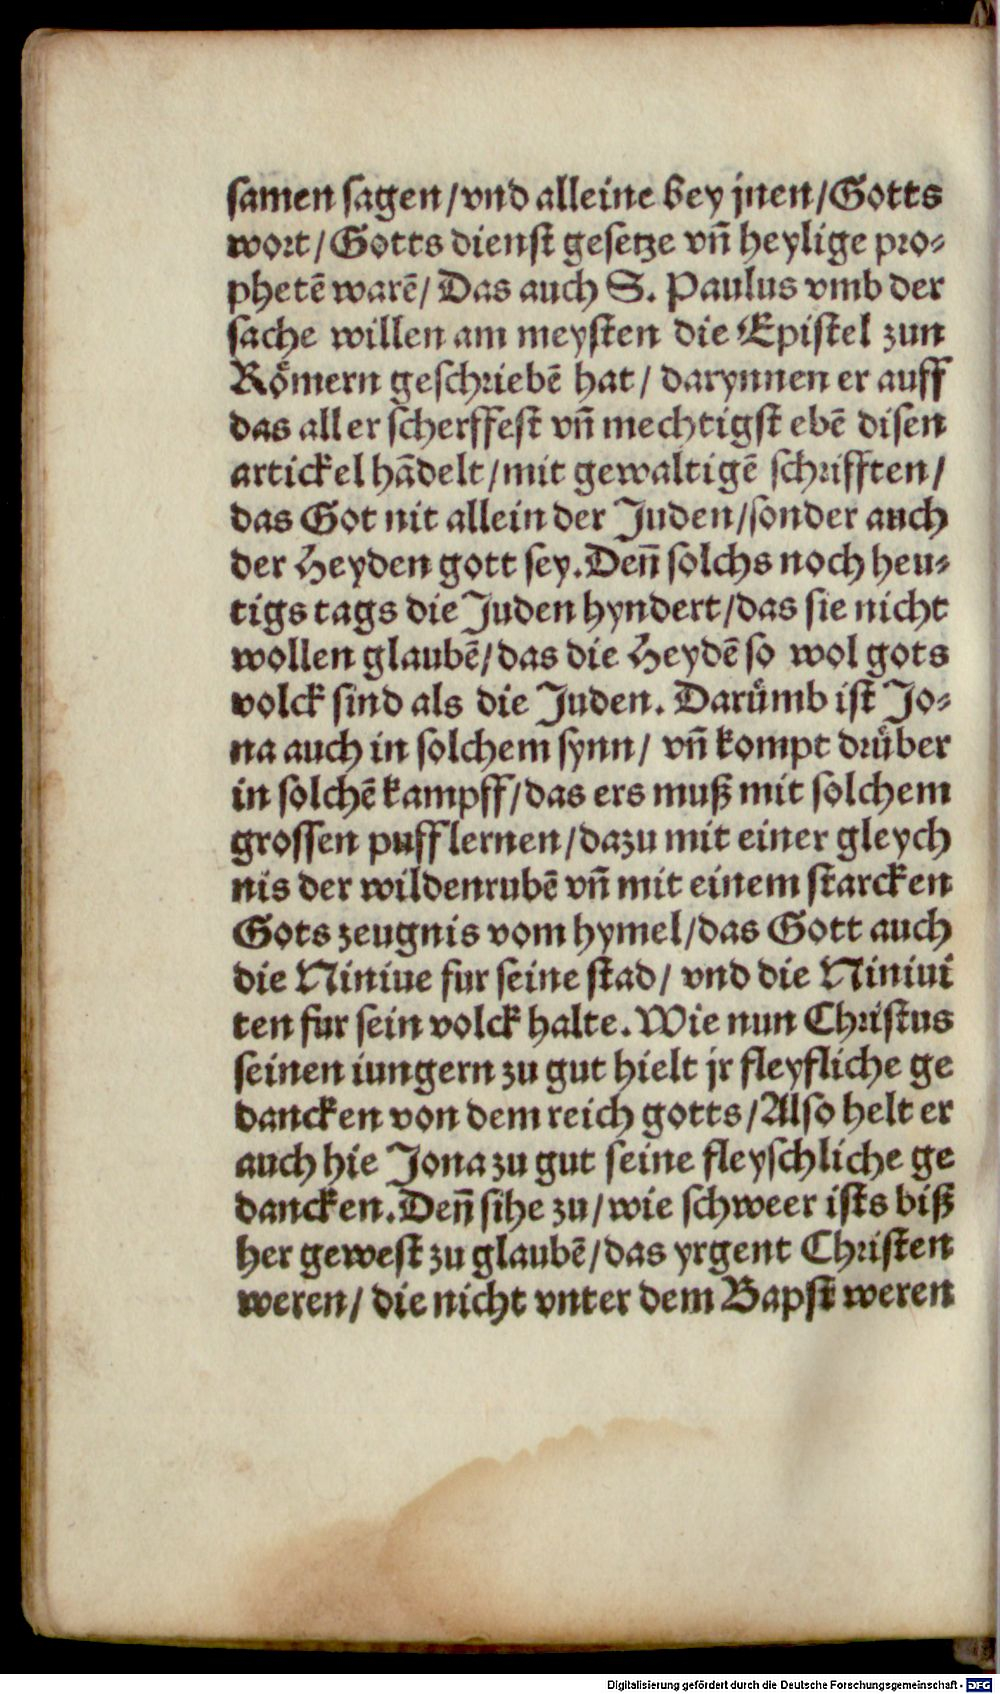 samen sagen/vnd alleine bey jnen/Gotts
wort/Gotts dienst gesetze vñ heylige pro⸗
phetē warē/Das auch S. Paulus vmb der
sache willen am meysten die Epistel zun
Roͤmern geschriebē hat/ darynnen er auff
das aller scherffest vñ mechtigst ebē disen
artickel hādelt/mit gewaltigē schrifften/
das Got nit allein der Juden/sonder auch
der Heyden gott sey.Deñ solchs noch heu⸗
tigs tags die Juden hyndert/das sie nicht
wollen glaubē/das die Heydē so wol gots
volck sind als die Juden. Daruͤmb ist Jo⸗
na auch in solchem synn/ vñ kompt druͤber
in solchē kampff/das ers muß mit solchem
grossen puff lernen/dazu mit einer gleych
nis der wildenrubē vñ mit einem starcken
Gots zeugnis vom hymel/das Gott auch
die Niniue fur seine stad/ vnd die Niniui
ten fur sein volck halte.Wie nun Christus
seinen iungern zu gut hielt jr fleyfliche ge
dancken von dem reich gotts/Also helt er
auch hie Jona zu gut seine fleyschliche ge
dancken.Deñ sihe zu/wie schweer ists biß
her gewest zu glaubē/das yrgent Christen
weren/ die nicht vnter dem Bapst weren
Digitalisierung gefördert durch die Deutsche Forschungsgemeinschaft - DFG